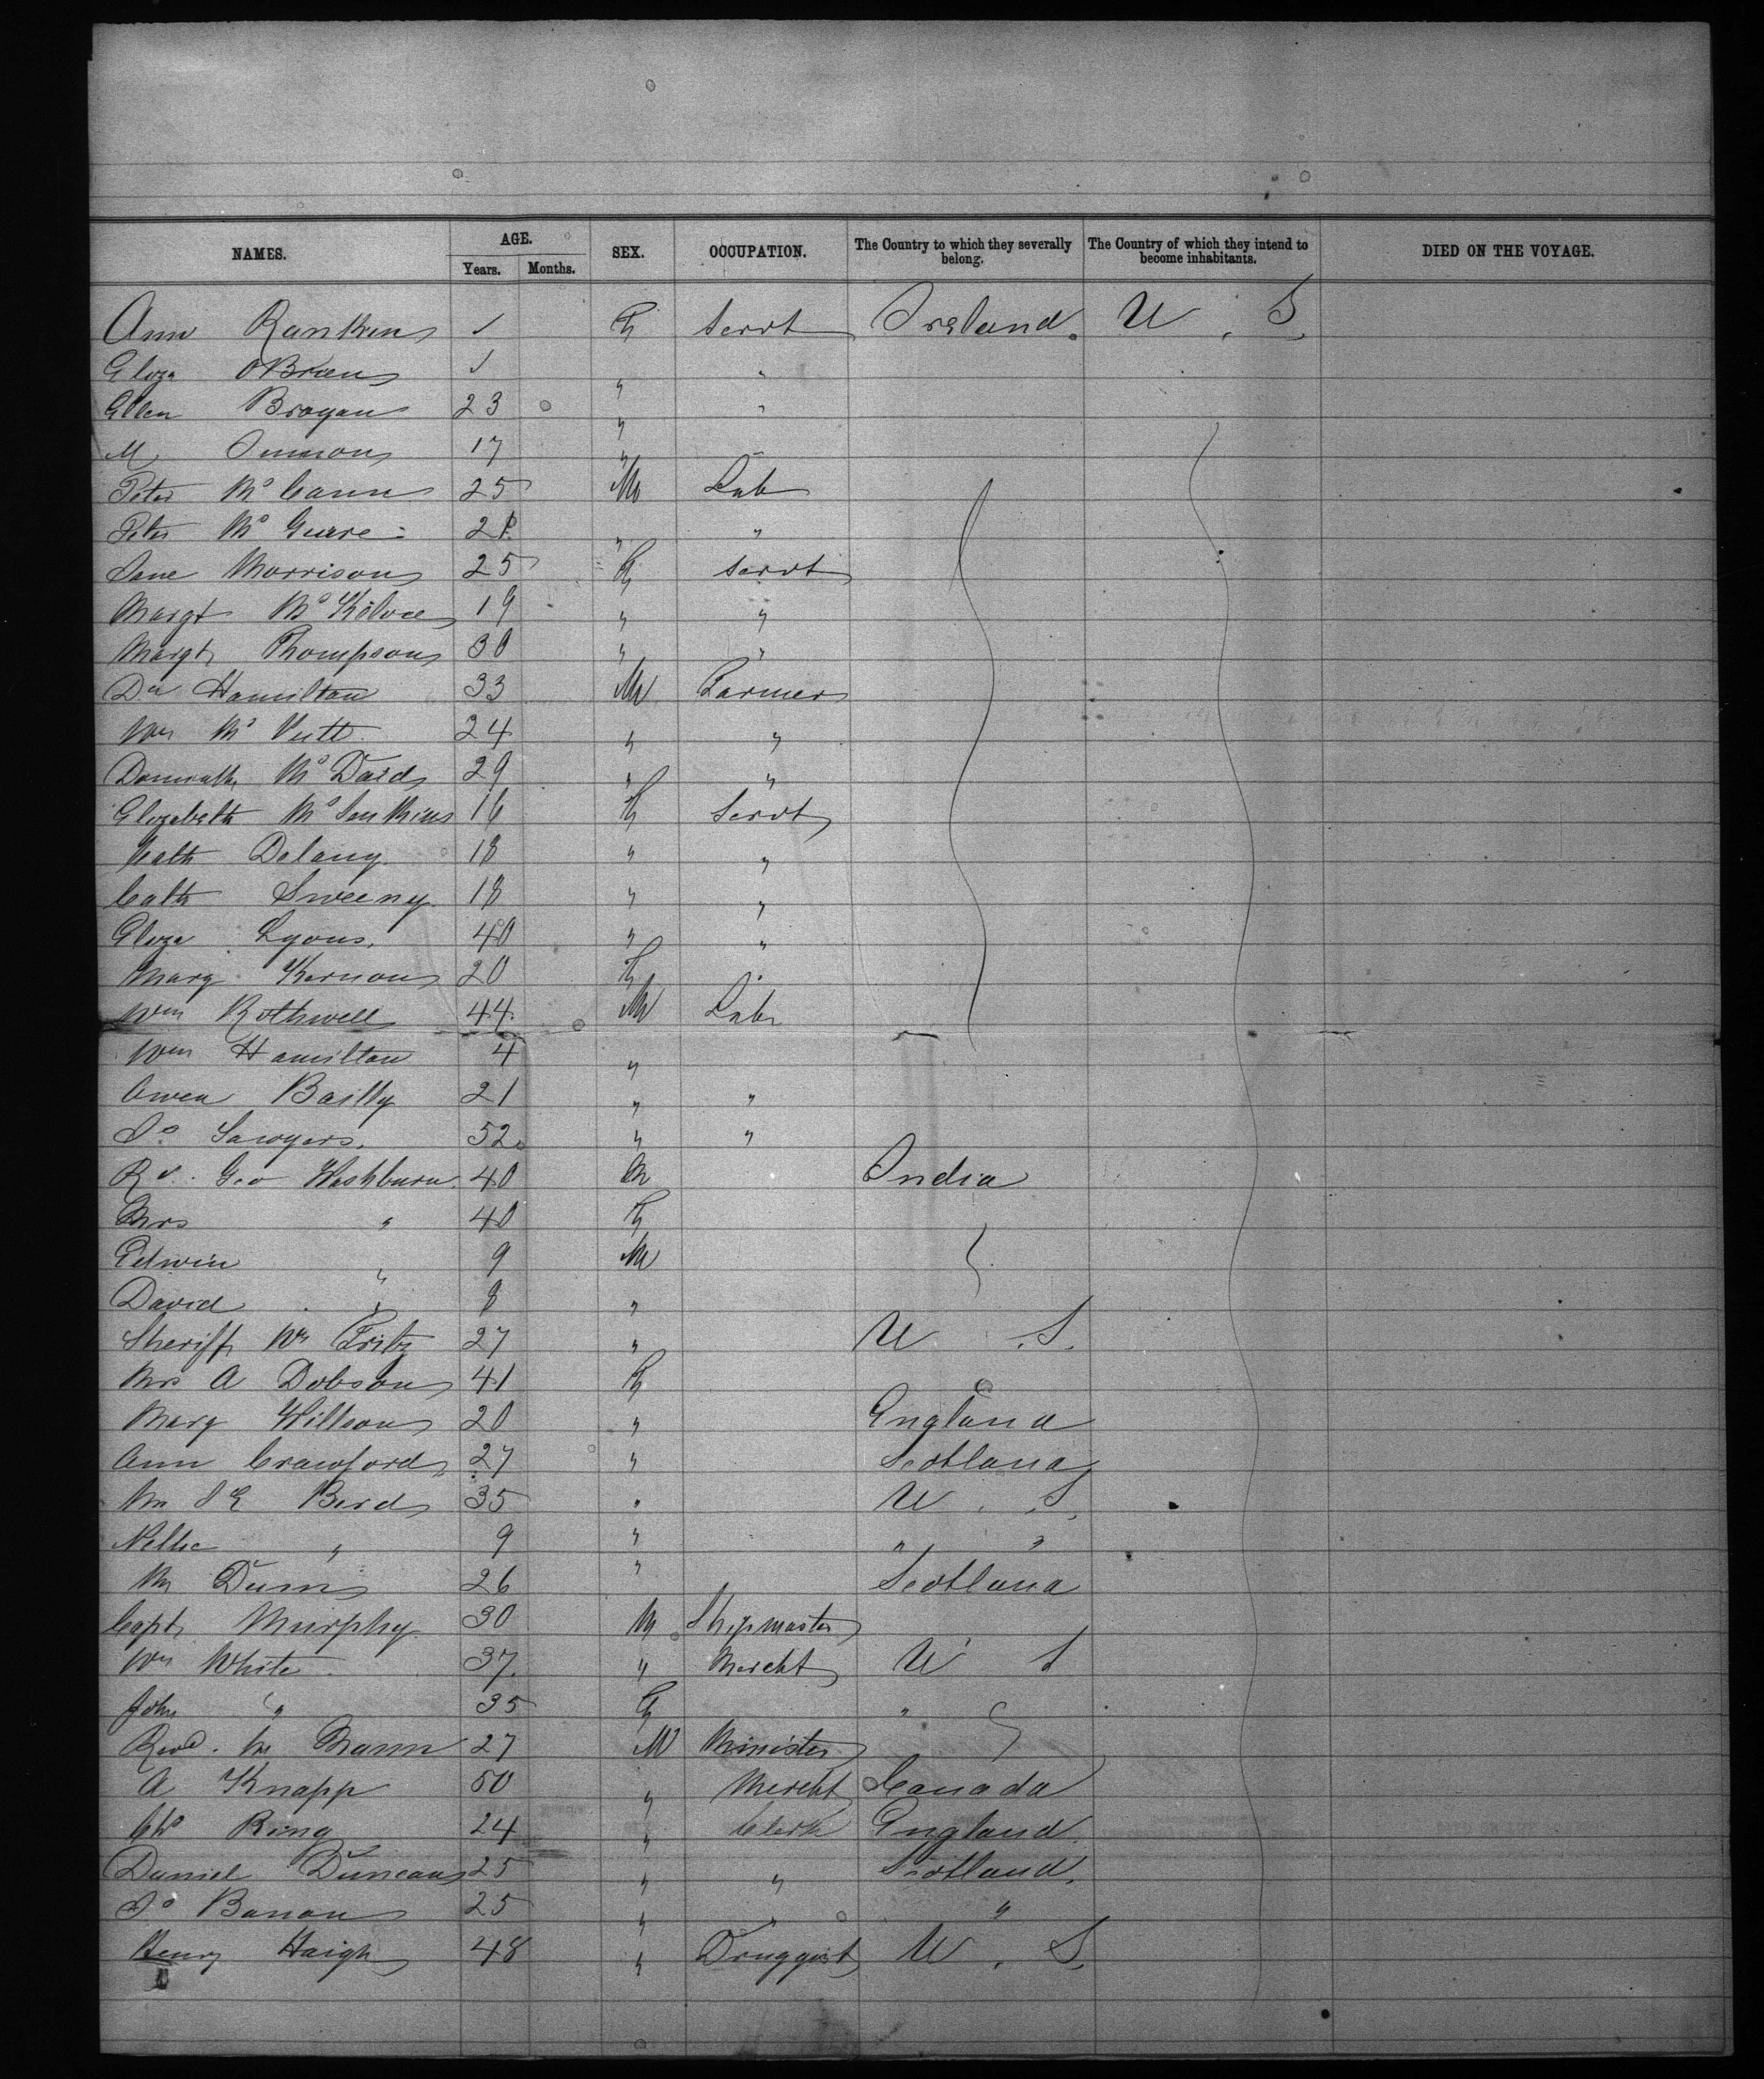 NAMES. AGE. SEX. OCCUPATION. The Country to which they severally belong. The Country of which they intend to become inhabitants. DIED ON THE VOYAGE.
Years. Months.
Ann Rankin ✓ F Servt Ireland. U. S.
Eliza OBrien ✓ " "
Ellen Brogan 23 " "
M 17 " "
Peter McCann 25 M Lab
Peter McGuire 21 " "
Jane Morrison 25 F Servt
Margt 19 " "
Margt Thompson 30 " "
Hamilton 33 M Farmer
Wm 24 " "
McDaid 29 " "
Elizabeth 16 F Servt
Cath Delany 18 " "
Cath Sweeny 18 " "
Eliza Lyons. 40 " "
Mary Kernon 20 F "
Wm Rothwell 44 M Labr
Wm Hamilton 4 "
Owen Bailly 21 " "
Jo Sawyers. 52 " "
Rv. Geo Washburn. 40 M India
Mrs " 40 F
Edwin " 9 M
David " 8 "
Sheriff Wm Fritz 27 " U. S.
Mrs A Dobson 41 F
Mary Willson 20 " England
Ann Crawford 27 " Scotland
J E Bird 35 " U. S.
Nellie " 9 " " "
M Dunn 26 " Scotland
Capt Murphy 30 M Shipmaster
Wm White 37 " Mercht U S
John " 35 F "
Revd. Mann 27 M Minister
A Knapp 50 " Mercht Canada
Chs Ring 24 " Clerk England
Daniel Duncan 25 " " Scotland.
Jo 25 " " "
Henry Haigh 48 " Druggist U. S.